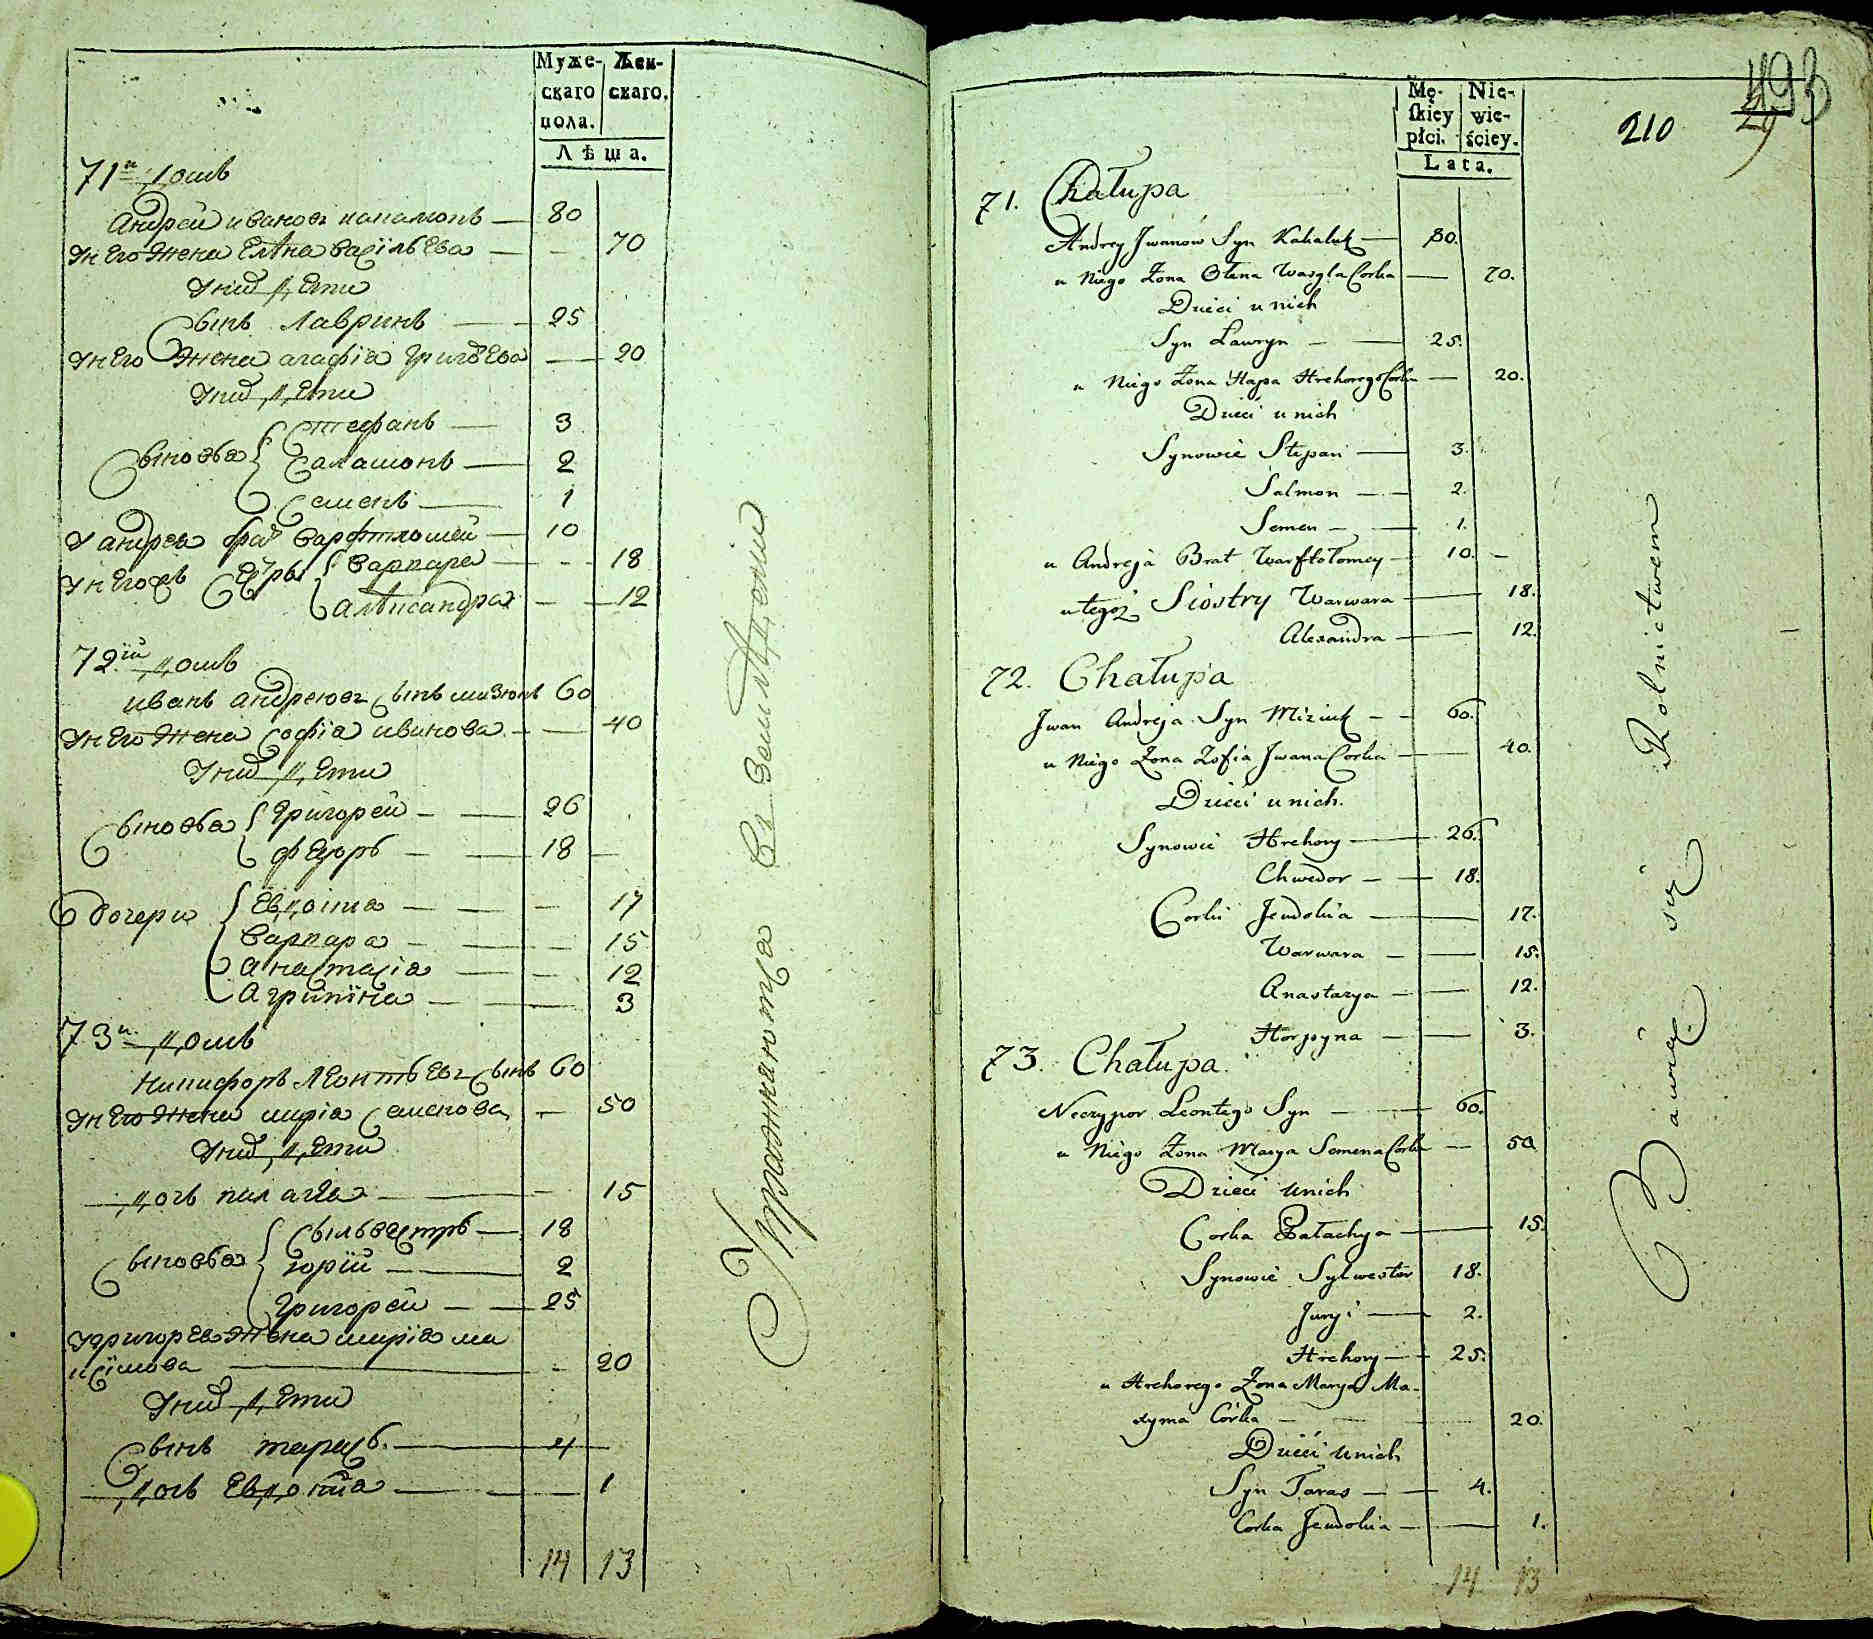 Муже-
скаго
пола.
Жен-
скаго.
Лѣта.
71й домъ
Андрей Ивановъ какалюкъ — 80
У Него Жена Елѣна Василье́ва — 70
У нихъ Дети
Сынъ Лавринъ — 25
У Него Жена агафіа Григорева — 20
У нихъ Дети
Сыновья { Стефанъ — 3
Саламонъ — 2
Семенъ — 1
У андрея братъ Варфтломей — 10
У Него Сестры { Варвара — 18
Алѣксандра — 12
72ій домъ
иванъ андреювъ Сынъ мизюкъ 60
У Него Жена Софіа иванова — 40
У нихъ Дети
Сыновья { Григорей — 26
Федоръ — 18
Дочери { Евдокіа — 17
Варвара — 15
Анастасіа — 12
Агрипина — 3
73й домъ
Никифоръ Леонтьевъ Сынъ 60
У Него Жена маріа Семенова — 50
У нихъ Дети
Дочь палагѣа — 15
Сыновья { Сыльвестръ — 18
юрій — 2
Григорей — 25
У григорея Жена маріа ма
ксімова — 20
У нихъ Дети
Сынъ тарасъ — 4
Дочь Евдокіа — 1
14 13
Упражняются въ земледѣліи
493
29
210
Mę-
skiey
płci.
Nie-
wie-
ściey.
Lata.
71. Chałupa
Andrey Jwanów Syn Kakaluk — 80.
u Niego Zona Ołena Wasyla Corka — 70.
Dzieci u nich
Syn Ławryn — 25.
u Niego Zona Hapa Hrehorego Corka — 20.
Dzieci u nich
Synowie Stepan — 3.
Salmon — 2.
Semen — 1.
u Andreja Brat Warftołomey — 10. —
u tegoż Siostry Warwara — 18.
Alexandra — 12.
72. Chałupa
Jwan Andreja Syn Miziuk — 60.
u Niego Zona Zofia Jwana Corka — 40.
Dzieci u nich.
Synowie Hrehory — 26.
Chwedor — 18.
Corki Jewdokia — 17.
Warwara — 15.
Anastazya — 12.
Horpyna — 3.
73. Chałupa.
Neczypor Leontego Syn — 60.
u Niego Zona Marya Semena Corka — 50
Dzieci u nich
Corka Pałachya — 15.
Synowie Sylwester 18.
Juryi — 2.
Hrehory — 25.
u Hrehorego Zona Marya Ma-
xyma Córka — 20.
Dzieci u nich
Syn Taras — 4.
Corka Jewdokia — 1.
14 13
Bawią się Rolnictwem